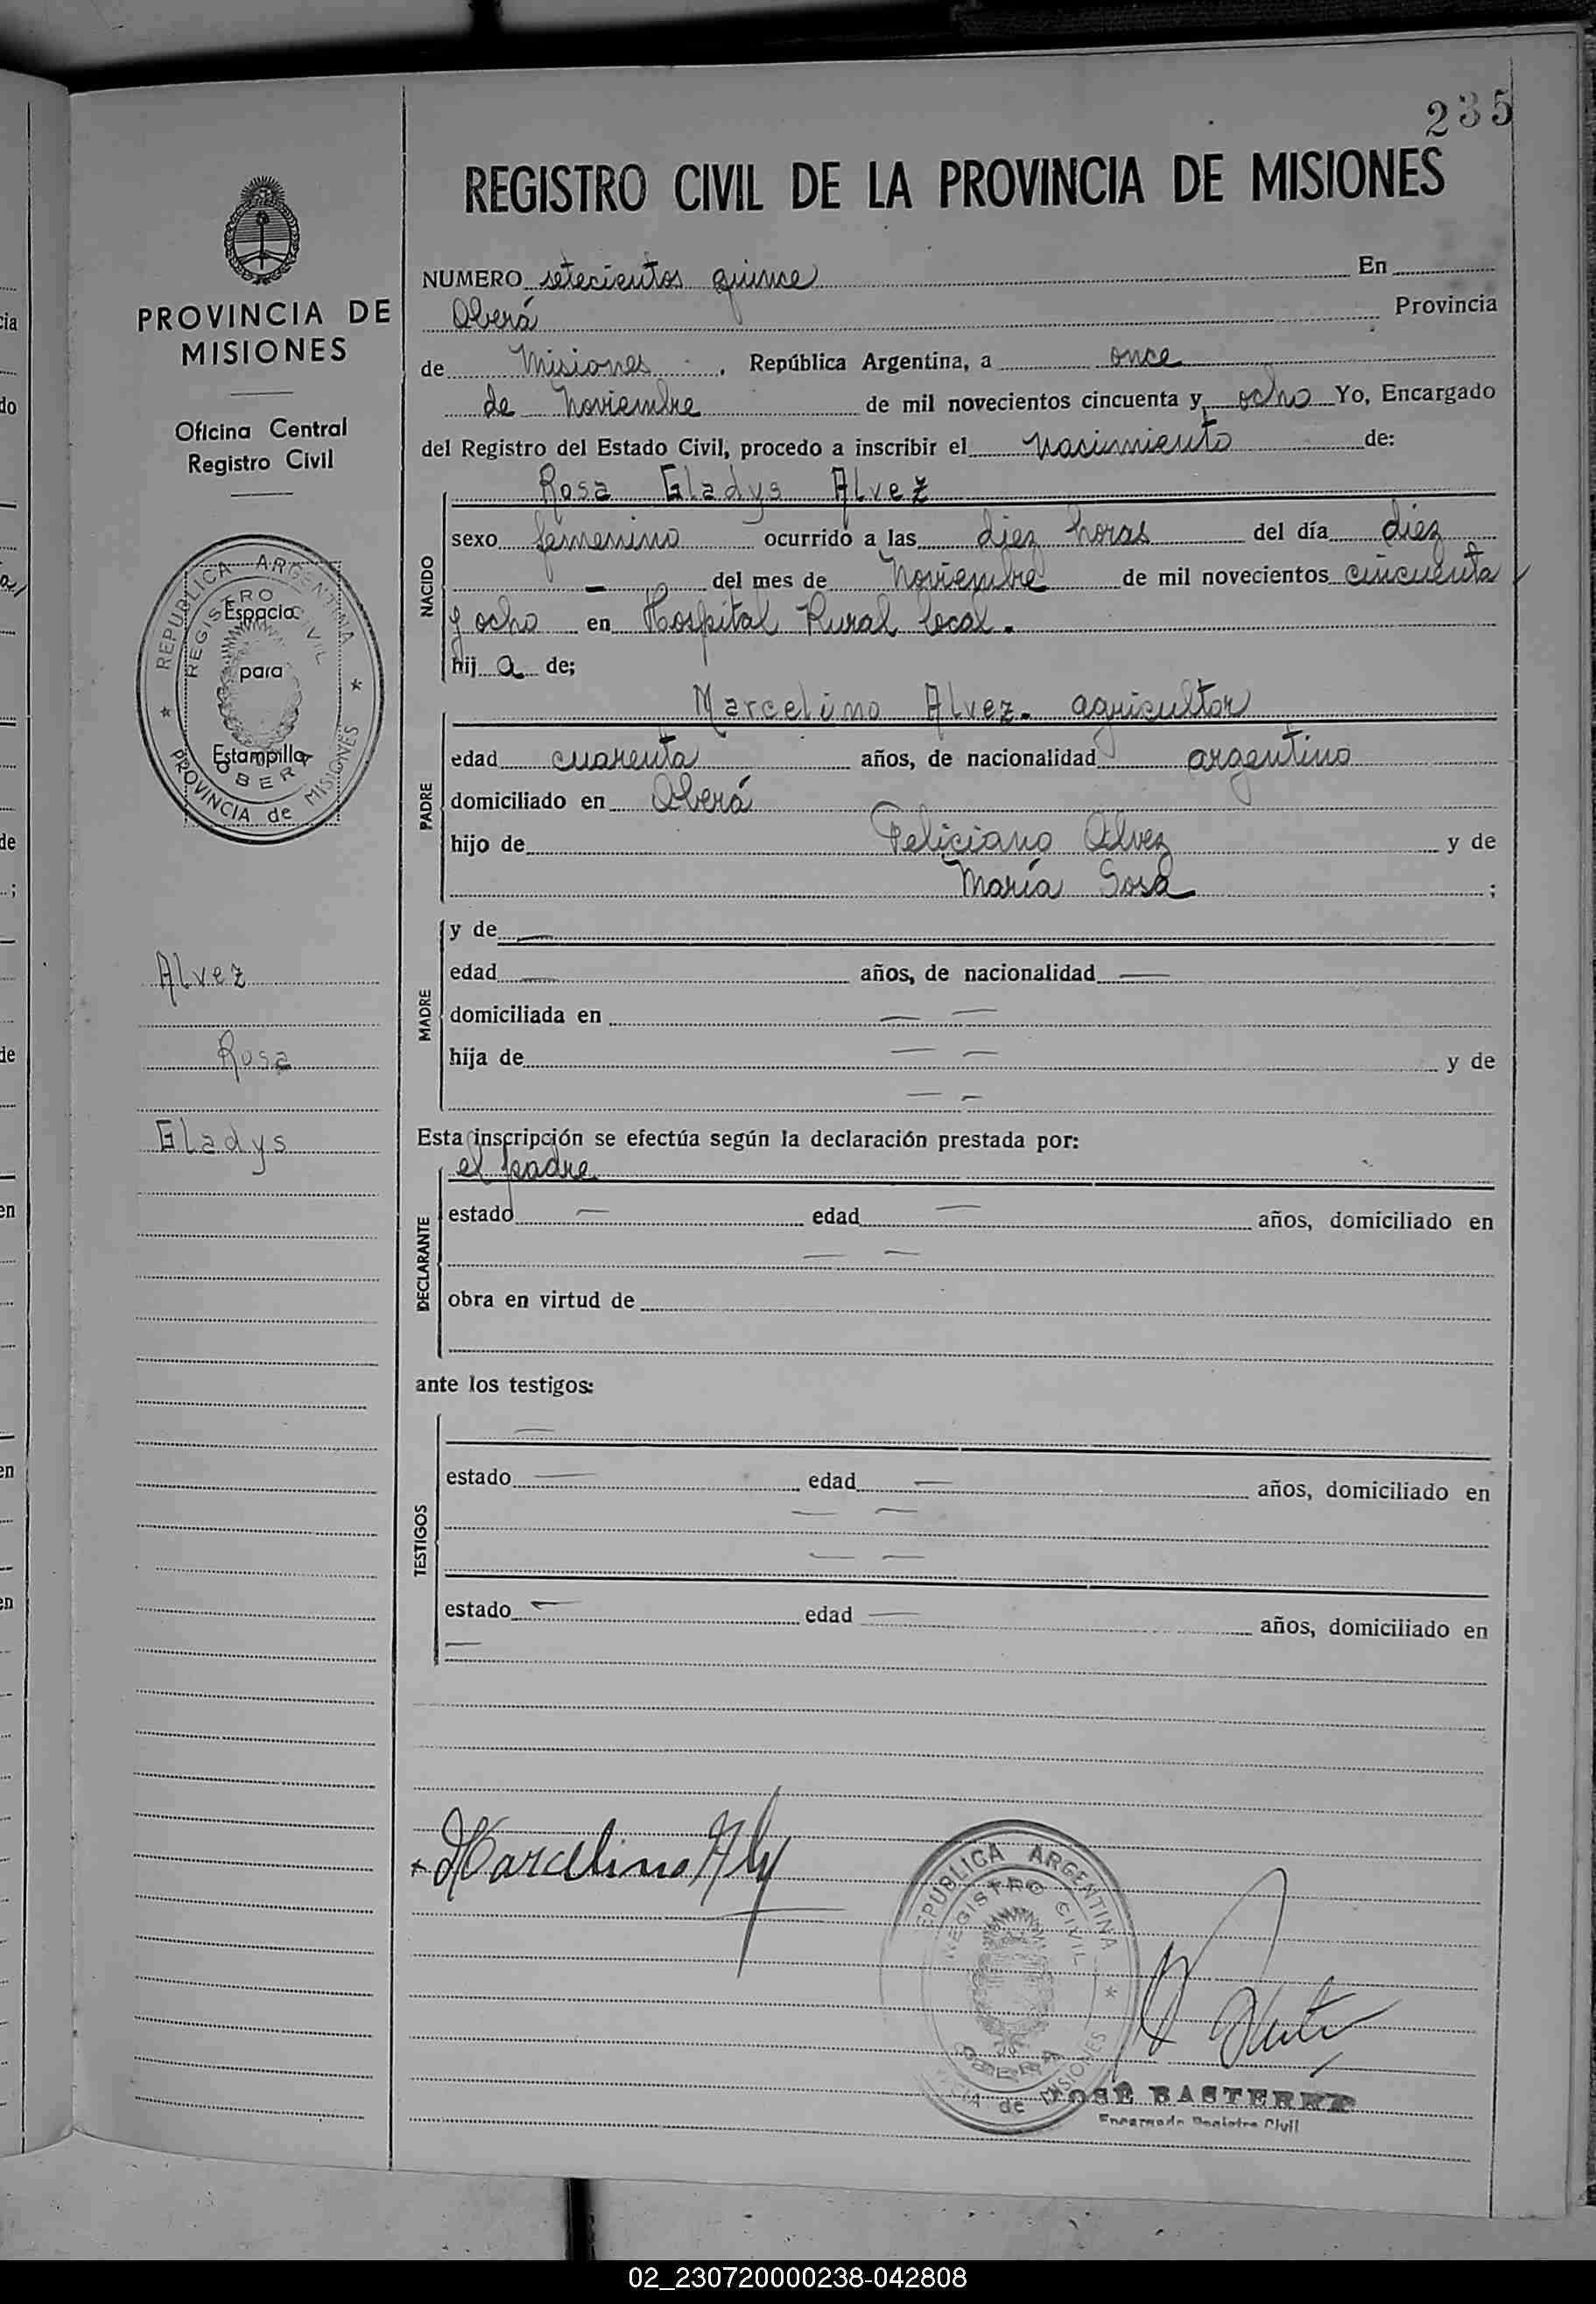 235
REGISTRO CIVIL DE LA PROVINCIA DE MISIONES
PROVINCIA DE
MISIONES
Oficina Central
Registro Civil
REPUBLICA ARGENTINA
REGISTRO CIVIL
Espacio
para
Estampilla
OBERA
PROVINCIA de MISIONES
Alvez
Rosa
Gladys
NUMERO setecientos quince En
Oberá Provincia
de Misiones, República Argentina, a once
de Noviembre de mil novecientos cincuenta y ocho Yo, Encargado
del Registro del Estado Civil, procedo a inscribir el nacimiento de:
NACIDO
Rosa Gladys Alvez
sexo femenino ocurrido a las diez horas del día diez
— del mes de Noviembre de mil novecientos cincuenta
y ocho en Hospital Rural local.
hij a de;
PADRE
Marcelino Alvez. agricultor
edad cuarenta años, de nacionalidad argentino
domiciliado en Oberá
hijo de Feliciano Alvez y de
María Sosa ;
MADRE
y de —
edad — años, de nacionalidad —
domiciliada en — —
hija de — — y de
— —
Esta inscripción se efectúa según la declaración prestada por:
DECLARANTE
el padre
estado — edad — años, domiciliado en
— —
obra en virtud de
ante los testigos:
TESTIGOS
—
estado — edad — años, domiciliado en
— —
— —
estado — edad — años, domiciliado en
—
Marcelino Alv
REPUBLICA ARGENTINA
REGISTRO CIVIL
OBERA
de MISIONES
JOSÉ BASTERRA
Encargado Registro Civil
02_230720000238-042808